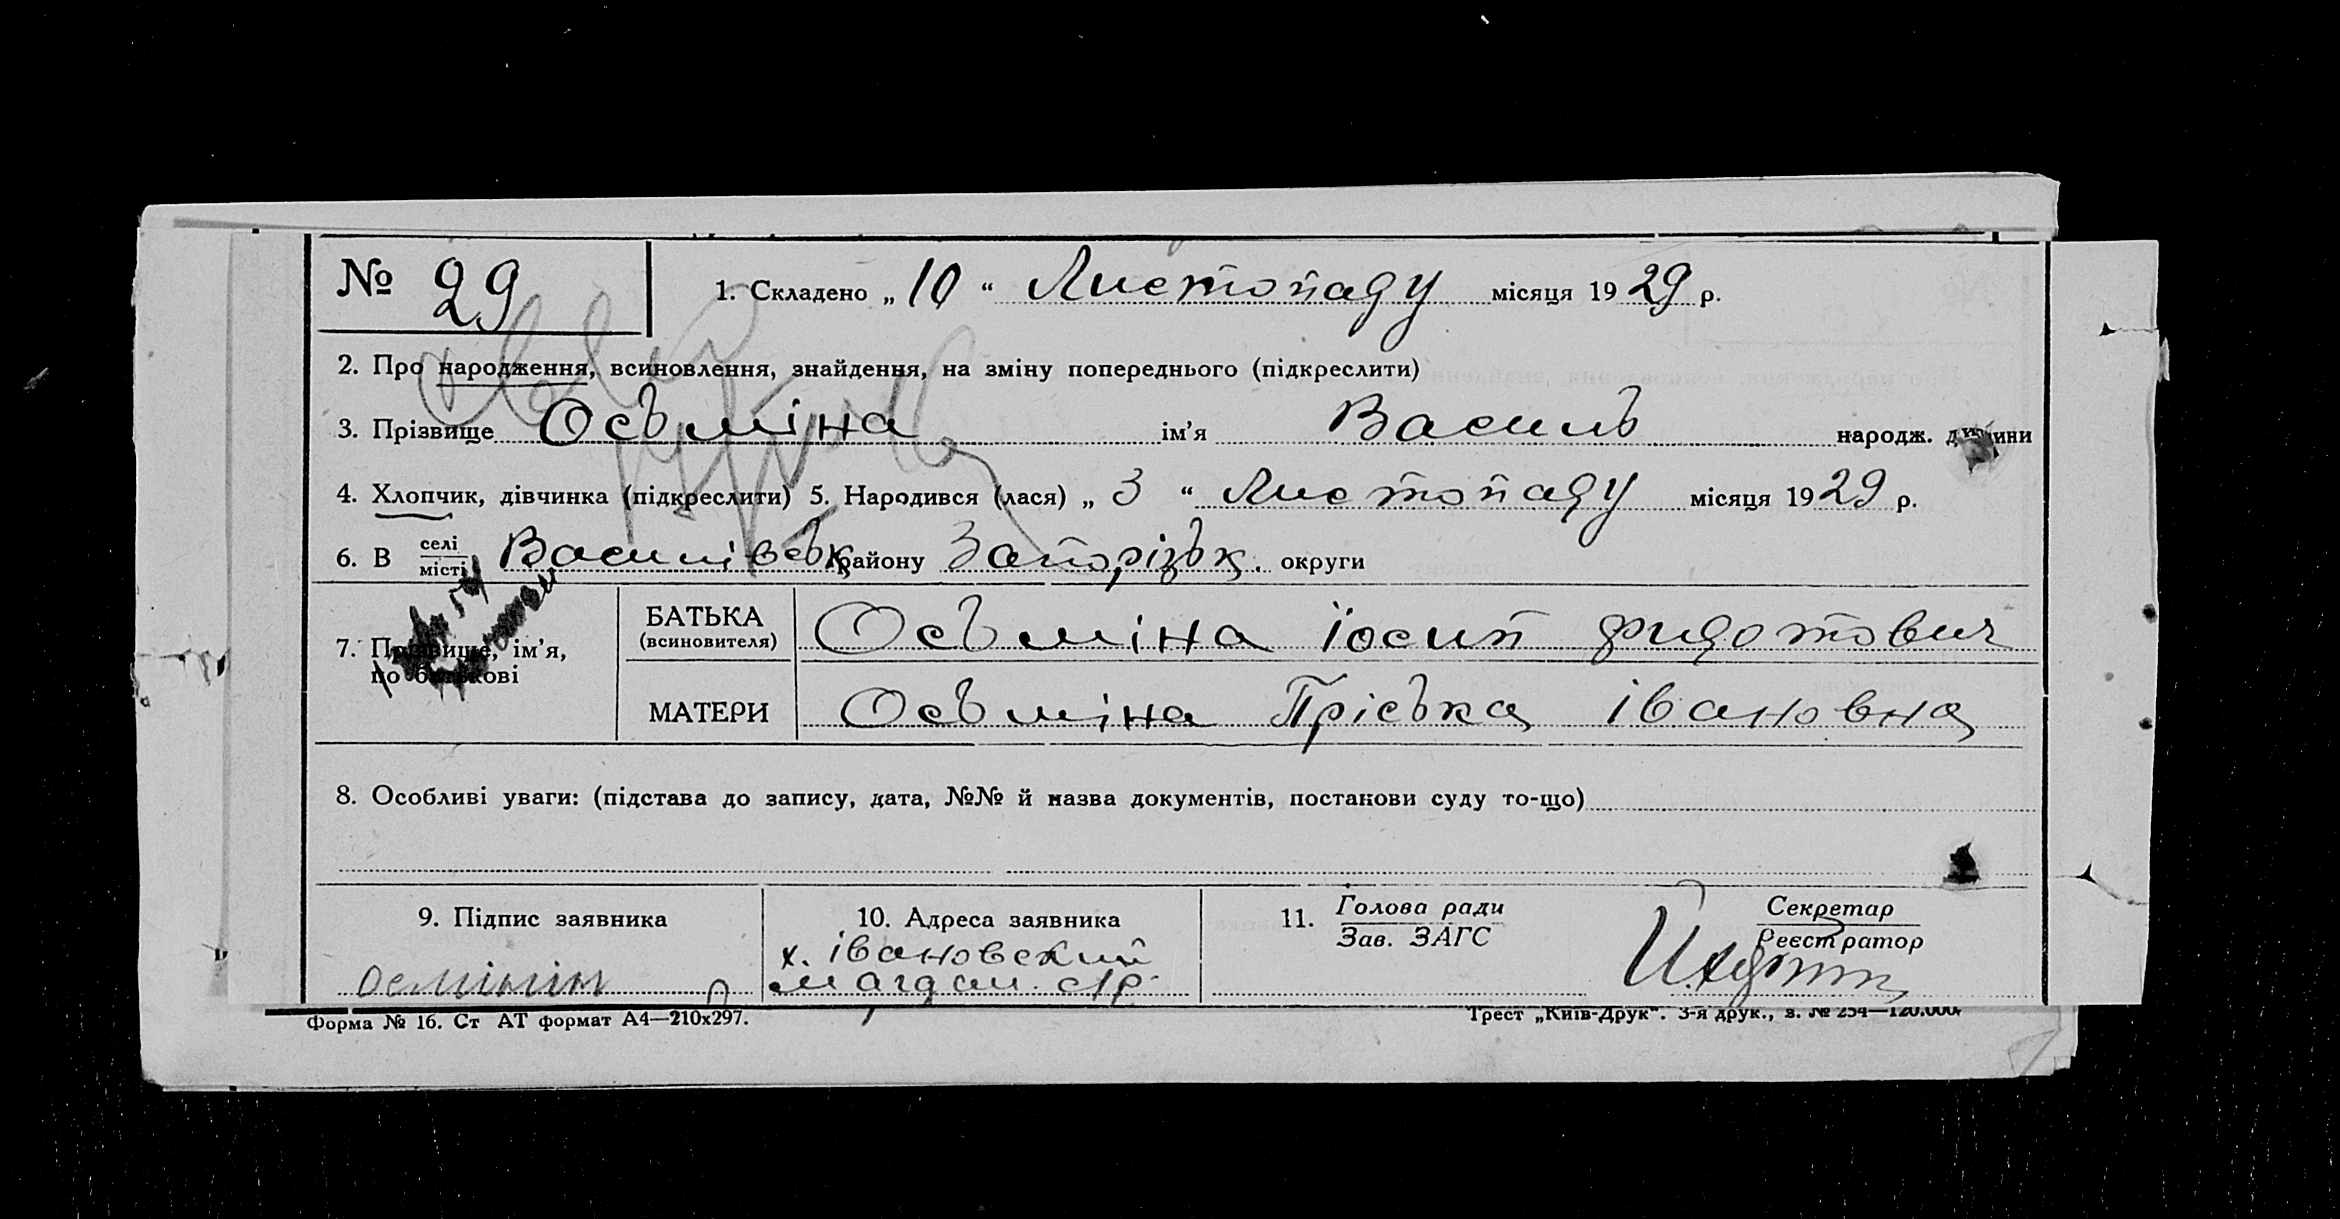 № 29
1. Складено „ 10 “ Листопаду місяця 1929 р.
2. Про народження, всиновлення, знайдення, на зміну попереднього (підкреслити)
3. Прізвище Осьміна ім’я Василь народж. дитини
4. Хлопчик, дівчинка (підкреслити) 5. Народився (лася) „ 3 “ Листопаду місяця 1929 р.
6. В селі
місті Василівськ району Запорізьк. округи
7. Прізвище, ім’я,
по батькові
БАТЬКА
(всиновителя)
Осьміна Іосип Фидотович
МАТЕРИ
Осьміна Пріська Івановна
8. Особливі уваги: (підстава до запису, дата, №№ й назва документів, постанови суду то-що)
9. Підпис заявника
Осмінін
10. Адреса заявника
х. Івановский
магдам. с/р.
11. Голова ради
Зав. ЗАГС
Секретар
Реєстратор
Форма № 16. Ст АТ формат А4—210х297.
Трест „Київ-Друк“. 3-я друк., з. № 254—120.000.